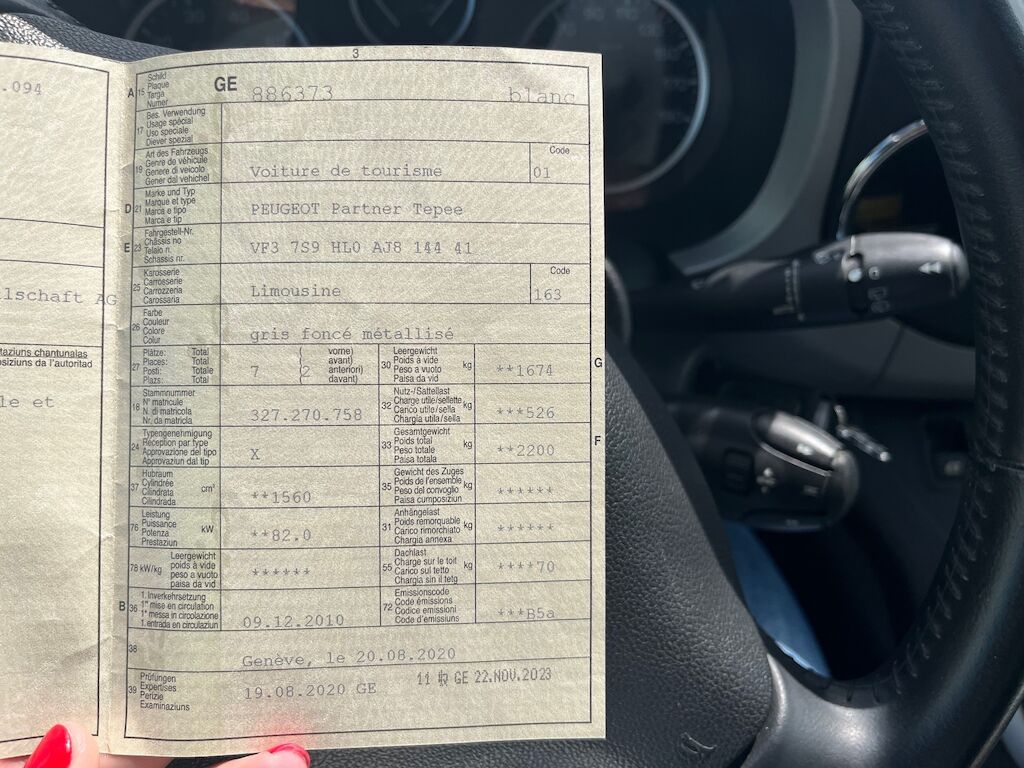 .094
llschaft AG
taziuns chantunalas
posiziuns da l'autoritad
le et
3
A 15 Schild
Plaque
Targa
Numer
GE 886373 blanc
17 Bes. Verwendung
Usage spécial
Uso speciale
Diever spezial
19 Art des Fahrzeugs
Genre de véhicule
Genere di veicolo
Gener dal vehichel
Voiture de tourisme
Code
01
D 21 Marke und Typ
Marque et type
Marca e tipo
Marca e tip
PEUGEOT Partner Tepee
E 23 Fahrgestell-Nr.
Châssis no
Telaio n.
Schassis nr.
VF3 7S9 HL0 AJ8 144 41
25 Karosserie
Carrosserie
Carrozzeria
Carossaria
Limousine
Code
163
26 Farbe
Couleur
Colore
Colur
gris foncé métallisé
27 Plätze: Total
Places: Total
Posti: Totale
Plazs: Total
7
(2 vorne)
avant)
anteriori)
davant)
30 Leergewicht
Poids à vide
Peso a vuoto
Paisa da vid
kg
**1674
G
18 Stammnummer
N° matricule
N. di matricola
Nr. da matricla
327.270.758
32 Nutz-/Sattellast
Charge utile/sellette
Carico utile/sella
Chargia utila/sella
kg
***526
24 Typengenehmigung
Réception par type
Approvazione del tipo
Approvaziun dal tip
X
33 Gesamtgewicht
Poids total
Peso totale
Paisa totala
kg
**2200
F
37 Hubraum
Cylindrée
Cilindrata
Cilindrada
cm³
**1560
35 Gewicht des Zuges
Poids de l'ensemble
Peso del convoglio
Paisa cumposiziun
kg
******
76 Leistung
Puissance
Potenza
Prestaziun
kW
**82.0
31 Anhängelast
Poids remorquable
Carico rimorchiato
Chargia annexa
kg
******
78 kW/kg Leergewicht
poids à vide
peso a vuoto
paisa da vid
******
55 Dachlast
Charge sur le toit
Carico sul tetto
Chargia sin il tetg
kg
****70
B 36 1. Inverkehrsetzung
1re mise en circulation
1a messa in circolazione
1. entrada en circulaziun
09.12.2010
72 Emissionscode
Code émissions
Codice emissioni
Code d'emissiuns
***B5a
38
Genève, le 20.08.2020
39 Prüfungen
Expertises
Perizie
Examinaziuns
19.08.2020 GE
GE 22.NOV.2023